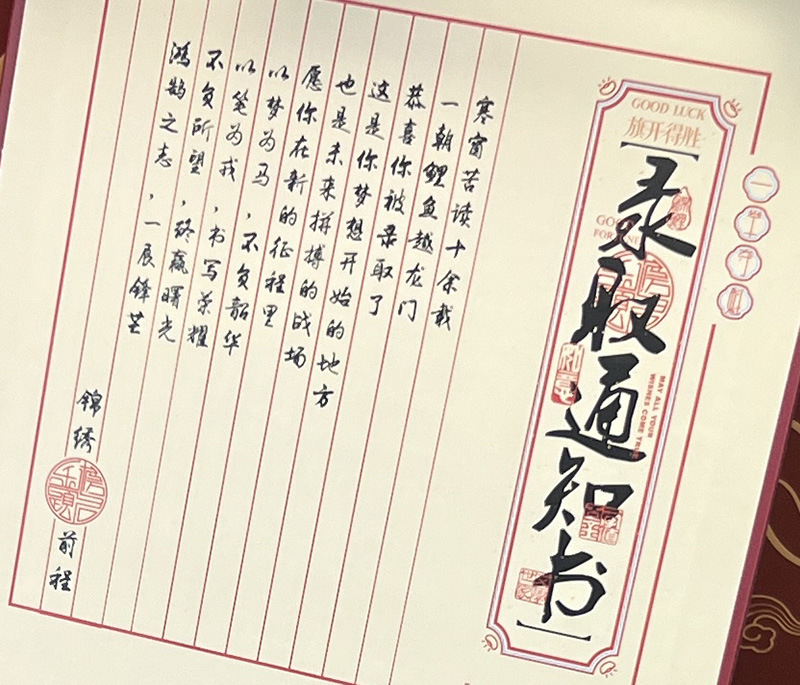 GOOD LUCK
旗开得胜
[录取通知书]
MAY ALL YOUR
WISHES COME TRUE
寒窗苦读十余载
一朝鲤鱼越龙门
恭喜你被录取了
这是你梦想开始的地方
也是未来拼搏的战场
愿你在新的征程里
以梦为马,不负韶华
以笔为戎,书写荣耀
不负所望,终赢曙光
鸿鹄之志,一展锋芒
锦绣
前程